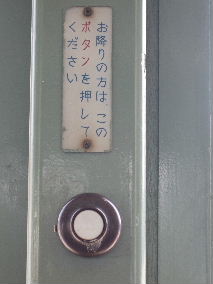 お降りの方は、この
ボタンを押して
ください